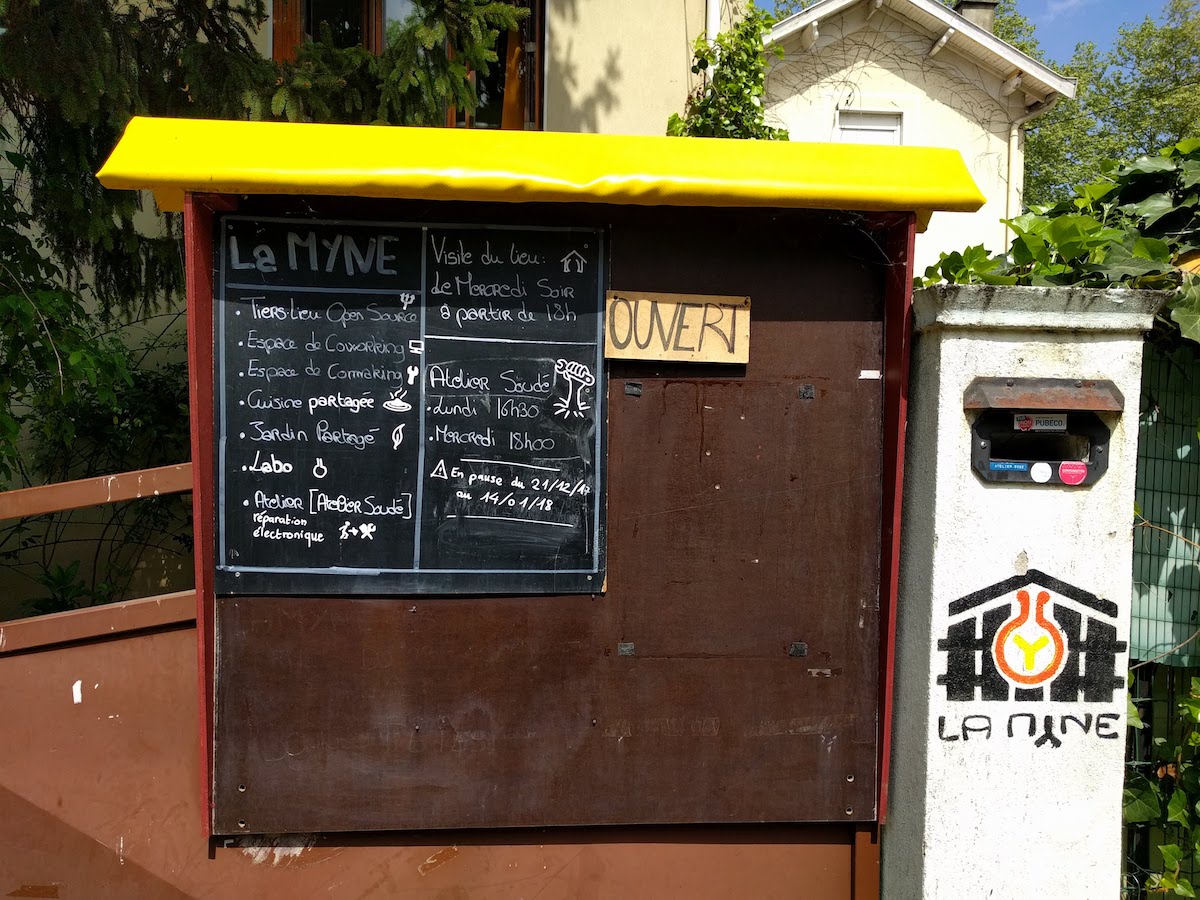 La MYNE
• Tiers-Lieu Open Source
• Espace de Coworking
• Espace de Commaking
• Cuisine partagée
• Jardin Partagé
• Labo
• Atelier [Atelier Soudé]
réparation
électronique
Visite du lieu:
Le Mercredi Soir
à partir de 18h
Atelier Soudé
• Lundi 16h30
• Mercredi 18h00
⚠ En pause du 21/12/17
au 14/01/18
OUVERT
PUBECO
ATELIER SOUDÉ
LA MYNE